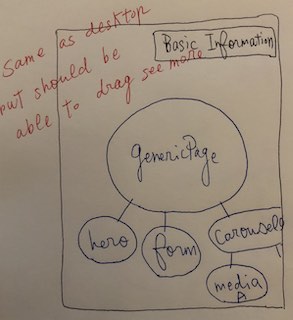 Same as desktop
but should be
able to drag see more
Basic Information
GenericPage
hero
form
Carousel
media
A